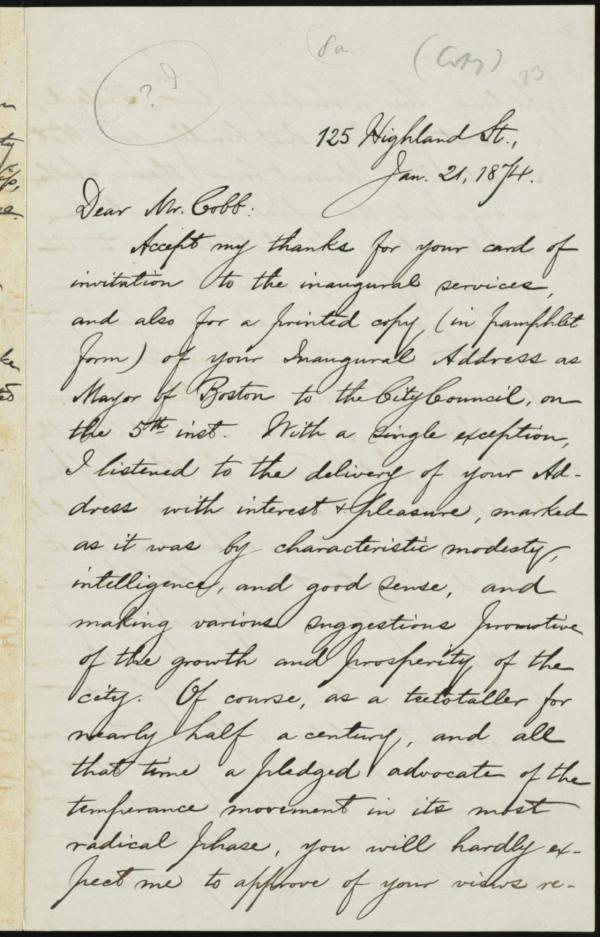 8a
(Copy)
23
?
125 Highland St.,
Jan. 21, 1874.
Dear Mr. Cobb:
Accept my thanks for your card of
invitation to the inaugural services,
and also for a printed copy (in pamphlet
form) of your Inaugural Address as
Mayor of Boston to the City Council, on
the 5th inst. With a single exception,
I listened to the delivery of your Ad-
dress with interest & pleasure, marked
as it was by characteristic modesty,
intelligence, and good sense, and
making various suggestions promotive
of the growth and prosperity of the
city. Of course, as a teetotaller for
nearly half a century, and all
that time a pledged advocate of the
temperance movement in its most
radical phase, you will hardly ex-
pect me to approve of your views re-